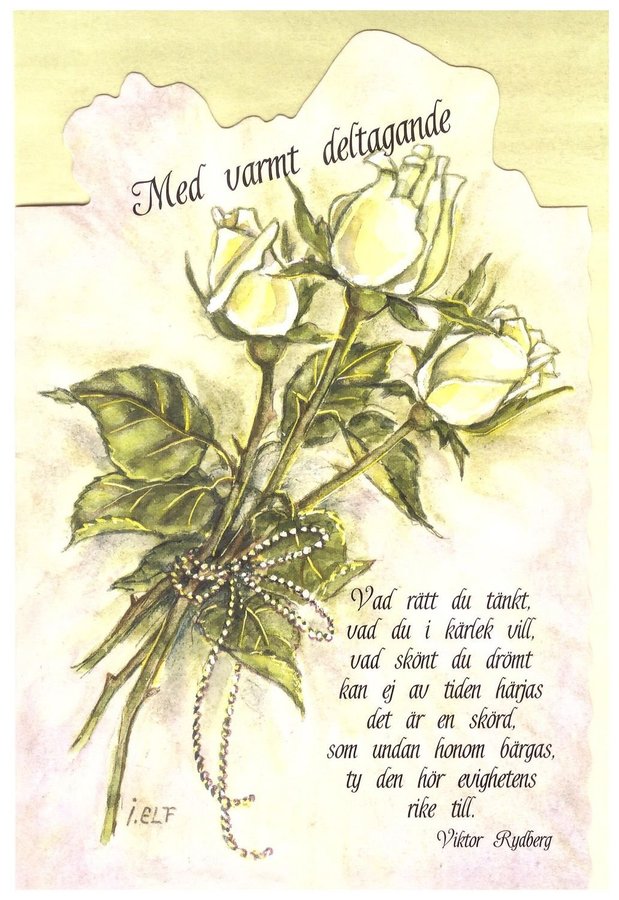 Med varmt deltagande
Vad rätt du tänkt,
vad du i kärlek vill,
vad skönt du drömt
kan ej av tiden härjas
det är en skörd,
som undan honom bärgas,
ty den hör evighetens
rike till.
Viktor Rydberg
i.ELF